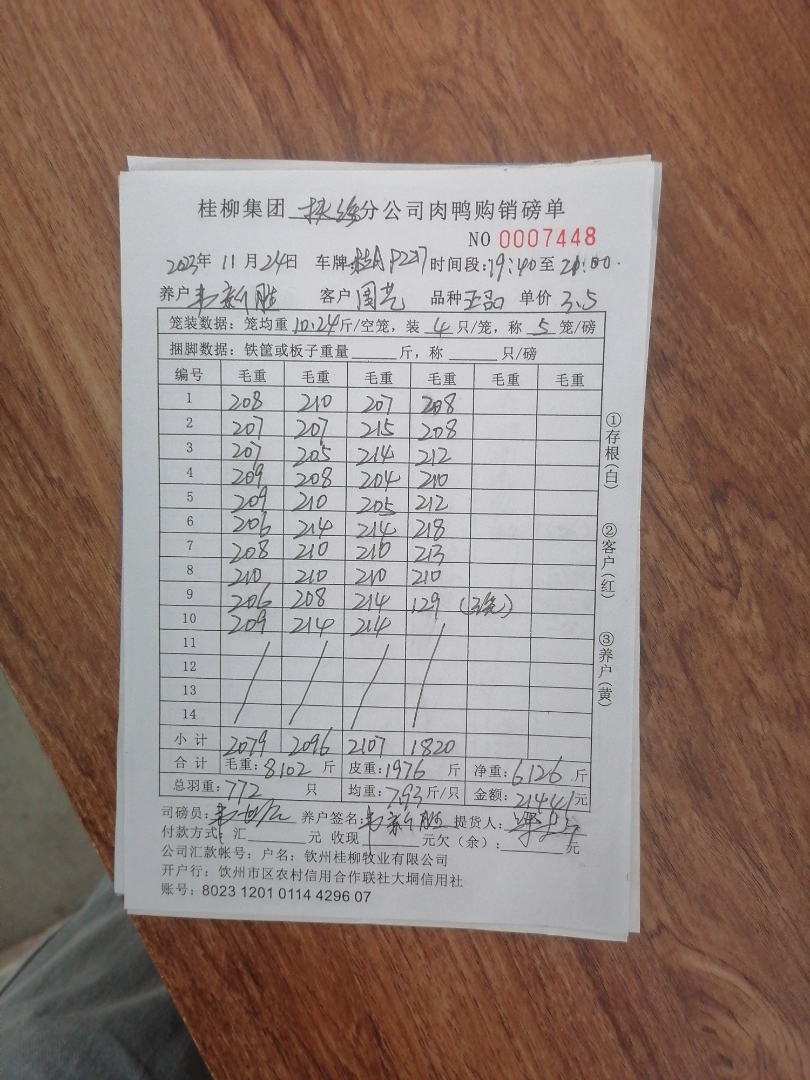 桂柳集团 扶绥 分公司肉鸭购销磅单
NO 0007448
2023年 11月 24日 车牌:桂A P2217 时间段:19:40至 21:00.
养户 韦新胜 客户 周艺 品种 正品 单价 3.5
笼装数据:笼均重 10.24 斤/空笼,装 4 只/笼,称 5 笼/磅
捆脚数据:铁筐或板子重量______斤,称______只/磅
编号 毛重 毛重 毛重 毛重 毛重 毛重
1 208 210 207 208
2 207 207 215 208
3 207 205 214 212
4 209 208 204 210
5 209 210 205 212
6 206 214 214 218
7 208 210 210 213
8 210 210 210 210
9 206 208 214 129 (3笼)
10 209 214 214
11
12
13
14
小计 2079 2096 2107 1820
合计 毛重:8102 斤 皮重:1976 斤 净重:6126 斤
总羽重:772 只 均重:7.93斤/只 金额:21441元
司磅员: 养户签名:韦新胜 提货人:
付款方式:汇______元 收现______元欠(余):______元
公司汇款帐号:户名:钦州桂柳牧业有限公司
开户行:钦州市区农村信用合作联社大垌信用社
账号:8023 1201 0114 4296 07
①存根(白)
②客户(红)
③养户(黄)